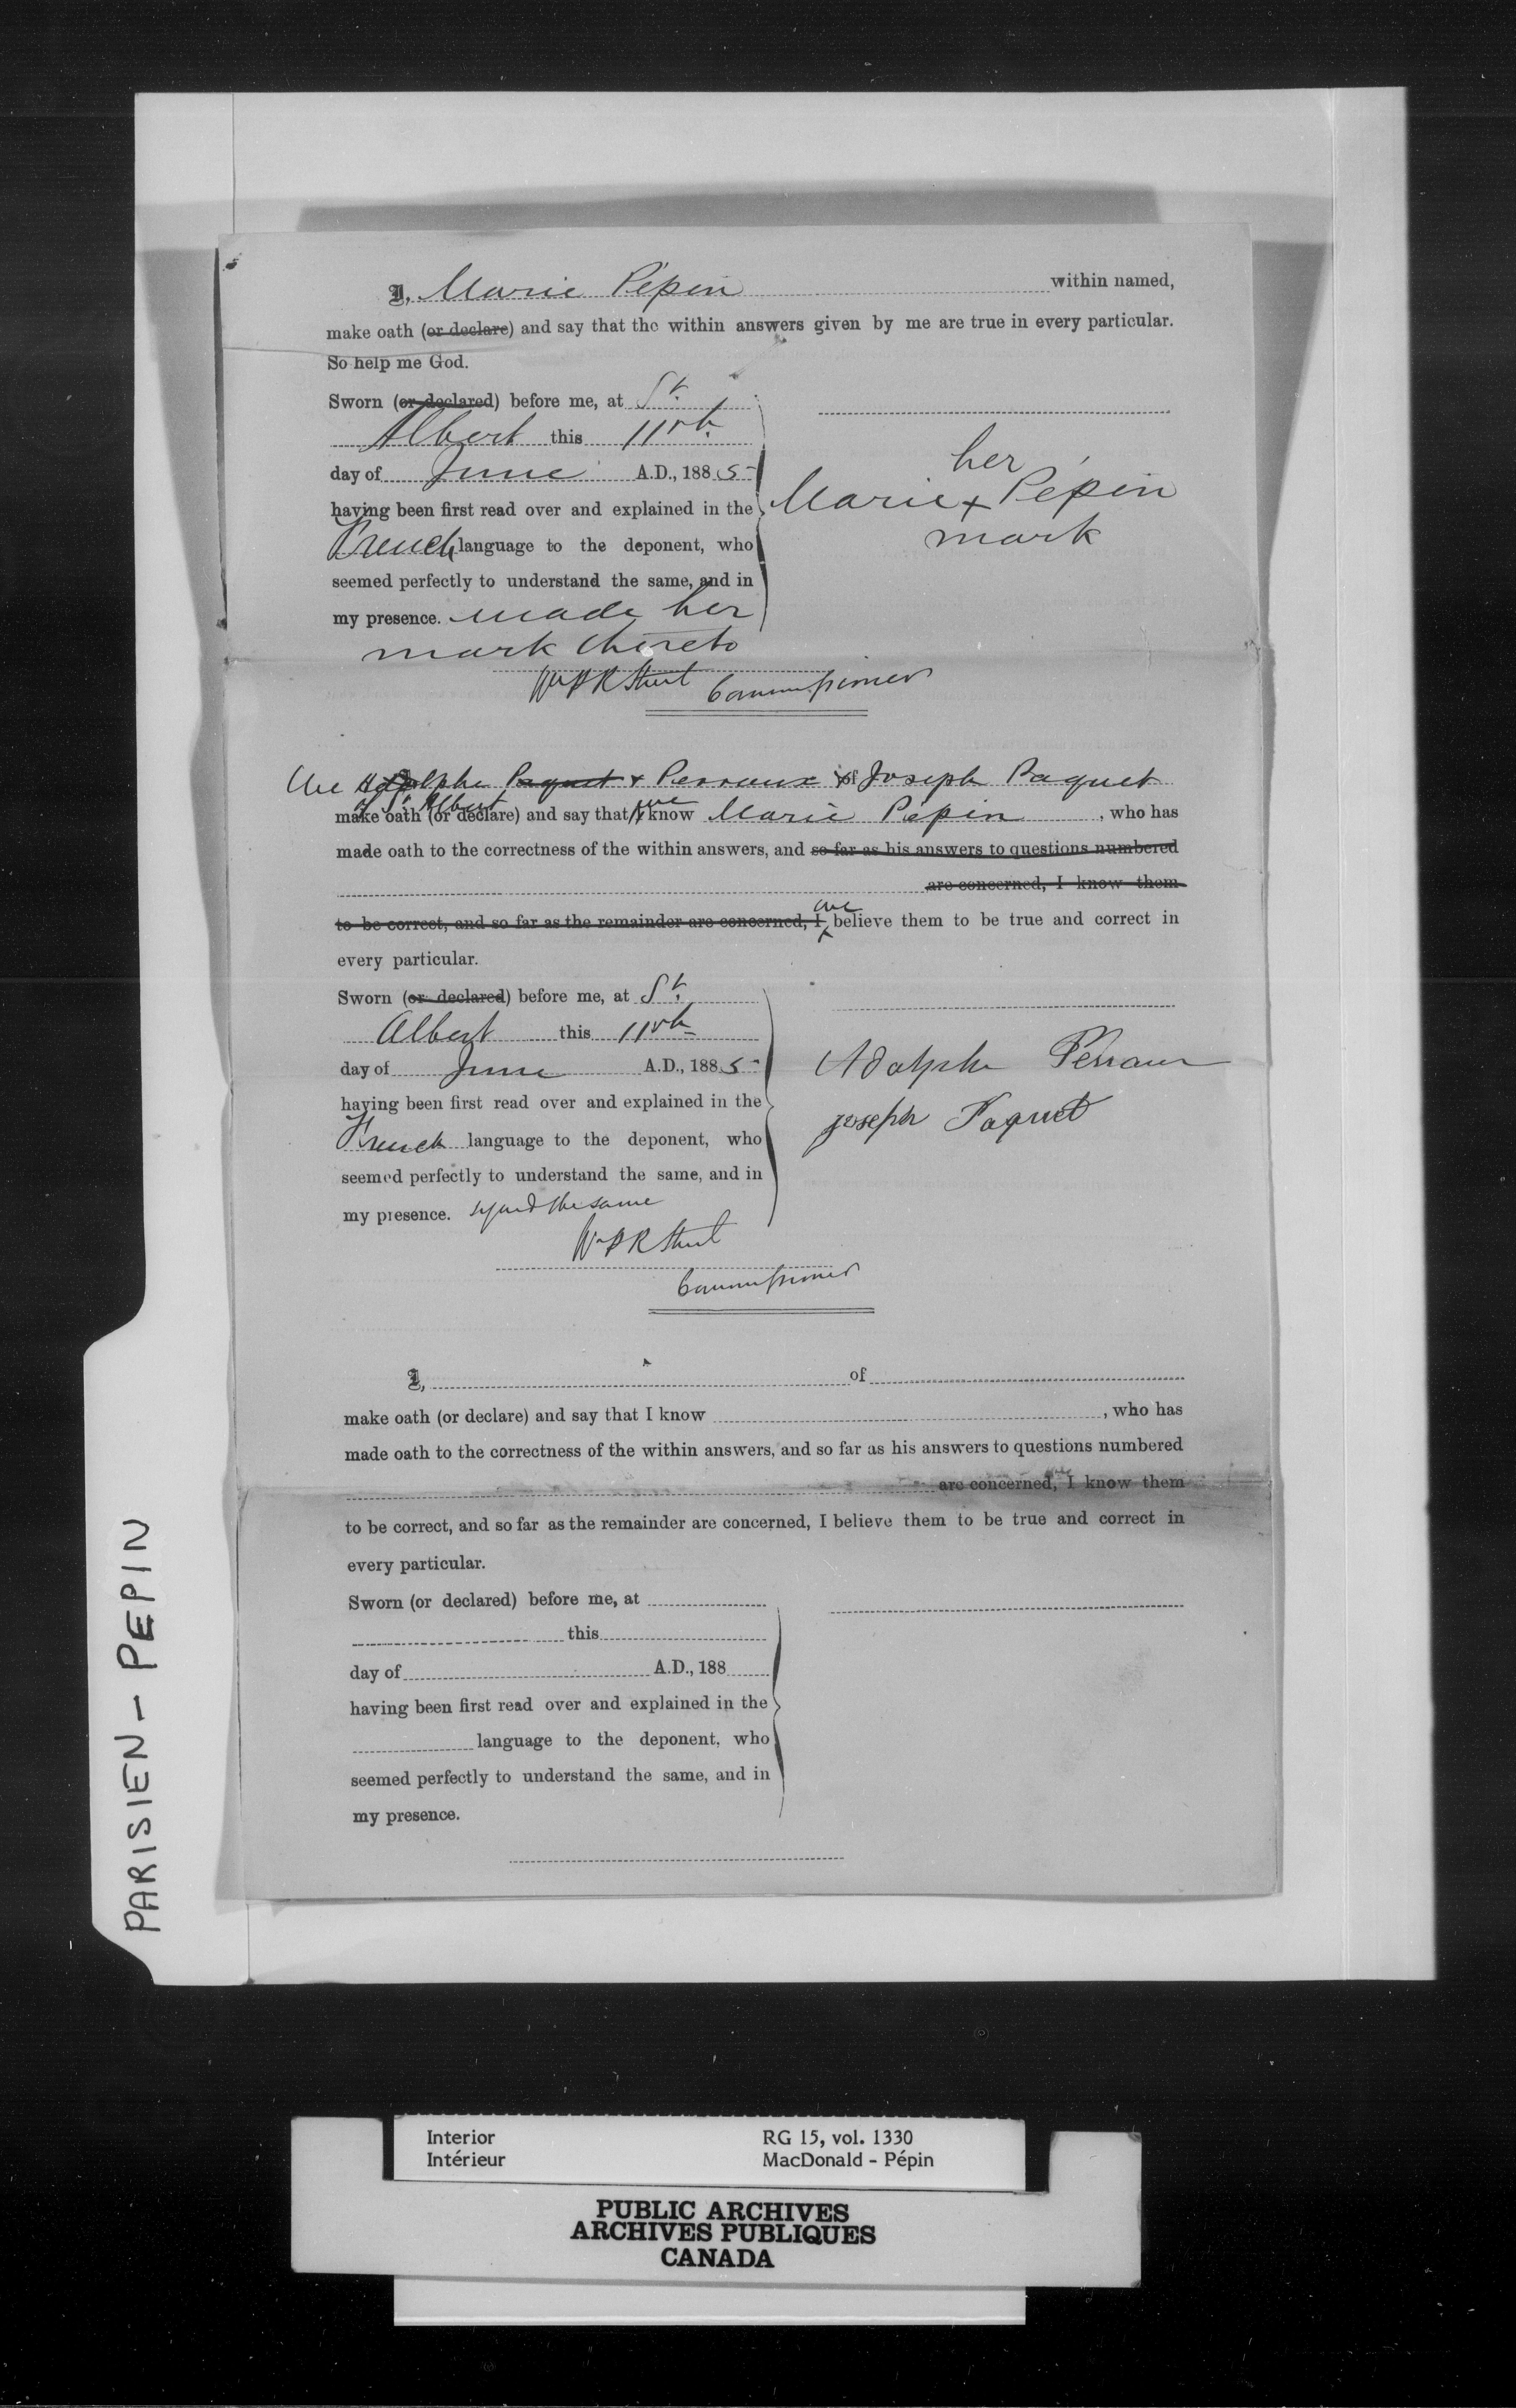 I, Marie Pépin within named,
make oath (or declare) and say that the within answers given by me are true in every particular.
So help me God.
Sworn (or declared) before me, at St.
Albert this 11th
day of June A.D., 1885
having been first read over and explained in the
French language to the deponent, who
seemed perfectly to understand the same, and in
my presence. made her
mark thereto
her
Marie x Pépin
mark
Wm P R Street Commissioner
We Adolphe Paquet & Perraux & of Joseph Paquet
of St. Albert
make oath (or declare) and say that we know Marie Pépin, who has
made oath to the correctness of the within answers, and so far as his answers to questions numbered
are concerned, I know them
to be correct, and so far as the remainder are concerned, I we believe them to be true and correct in
every particular.
Sworn (or declared) before me, at St.
Albert this 11th
day of June A.D., 1885
having been first read over and explained in the
French language to the deponent, who
seemed perfectly to understand the same, and in
my presence. signed the same
Adolphe Perraux
Joseph Paquet
Wm P R Street
Commissioner
I, of
make oath (or declare) and say that I know , who has
made oath to the correctness of the within answers, and so far as his answers to questions numbered
are concerned, I know them
to be correct, and so far as the remainder are concerned, I believe them to be true and correct in
every particular.
Sworn (or declared) before me, at
this
day of A.D., 188
having been first read over and explained in the
language to the deponent, who
seemed perfectly to understand the same, and in
my presence.
PARISIEN - PEPIN
Interior RG 15, vol. 1330
Intérieur MacDonald - Pépin
PUBLIC ARCHIVES
ARCHIVES PUBLIQUES
CANADA